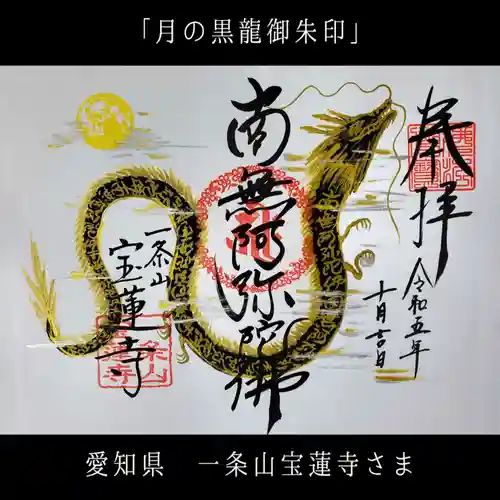 「月の黒龍御朱印」
奉拝
令和五年
十月吉日
南無阿弥陀佛
一条山
宝蓮寺
一条山
宝蓮寺
愛知県 一条山宝蓮寺さま